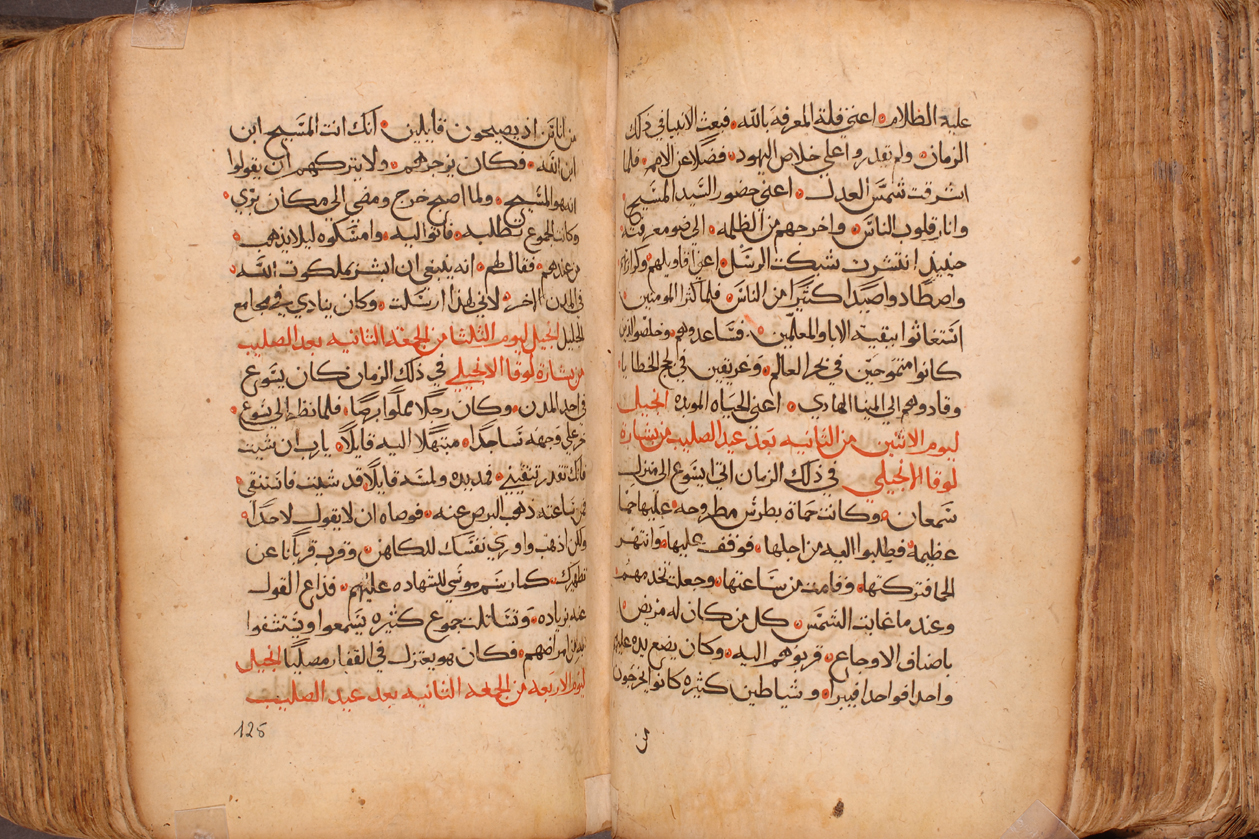 عليه الظلام اعني قلة المعرفه بالله فبعث الانبيا في ذلك
الزمان ولم يقدروا علي خلاص اليهود فضلًا عن الامم فلما
اشرقت شمس العدل اعني حضور السيد المسيح
وانار قلوب الناس واخرجهم من الظلمه الي ضو معرفته
حينيذٍ انتشرت شبكت الرسل اعني اقاويلهم
واصطادوا صيدًا كثيرًا من الناس فلما كثرا المومنين
استغاثوا ببقية الابا والمعلمين فساعدوهم وخلصوا الذين
كانوا متموجين في بحر العالم وغريقين في لجج الخطايا
وقادوهم الي المينا الهادي اعني الحياه الموبده انجيل
ليوم الاثنين من الثانيه بعد عيد الصليب من بشارة
لوقا الانجيلي في ذلك الزمان اتي ايشوع الي منزل
شمعان وكانت حماة بطرس مطروحه عليها حما
عظيمة فطلبوا اليه من اجلها فوقف عليها وانتهر
الحما فتركتها وقامت من ساعتها وجعلت تخدمهم
وعند ما غابت الشمس كل من كان له مريض
باصناف الاوجاع قربوهم اليه وكان يضع يده عليهم
واحدا فواحدا فيبرا وشياطين كثيره كانوا يخرجون
ز
من اناسٍ اذ يصيحون قايلين انك انت المسيح ابن
ابن الله فكان يزجرهم ولا يتركهم ان يقولوا
انه هو المسيح ولما اصبح خرج ومضي الي مكان بري
وكانت الجموع تطلبه فاتوا اليه وامسكوه ليلا يذهب
من عندهم فقال لهم انه ينبغي ان ابشر بملكوت الله
في المدن الاخر لاني لهذا ارسلت وكان ينادي في مجامع
الجليل انجيل ليوم الثلثا من الجمعه الثانيه بعد الصليب
من بشارة لوقا الانجيلي في ذلك الزمان كان يشوع
في احد المدن وكان رجلًا مملوا برصًا فلما نظر الي يشوع
خر علي وجهه ساجدًا مبتهلًا اليه قايلًا يا رب ان شيت
فانك تقدر تنقيني فمد يده ولمسه قايلًا قد شيت فاستنقي
فمن ساعته ذهب البرص عنه فوصاه ان لا يقول لاحدٍ
ولكن اذهب واوري نفسك للكاهن وقرب قربانا عن
تطهيرك كما رسم موسي للشهاده عليهم فذاع القول
عنه بزياده وتساتلت جموع كثيره يسمعوا ويستشفوا
من امراضهم فكان هو يعتزل في القفار مصليًا انجيل
ليوم الاربعه من الجمعه الثانيه بعد عيد الصليب
125